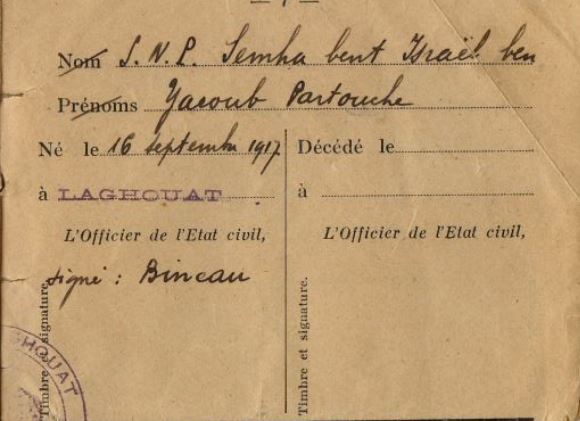 — 7 —
Nom S.N.P. Semha bent Israël ben
Prénoms Yacoub Partouche
Né le 16 septembre 1917
à LAGHOUAT
L'Officier de l'Etat civil,
signé : Bineau
Timbre et signature.
Décédé le
à
L'Officier de l'Etat civil,
Timbre et signature.
LAGHOUAT